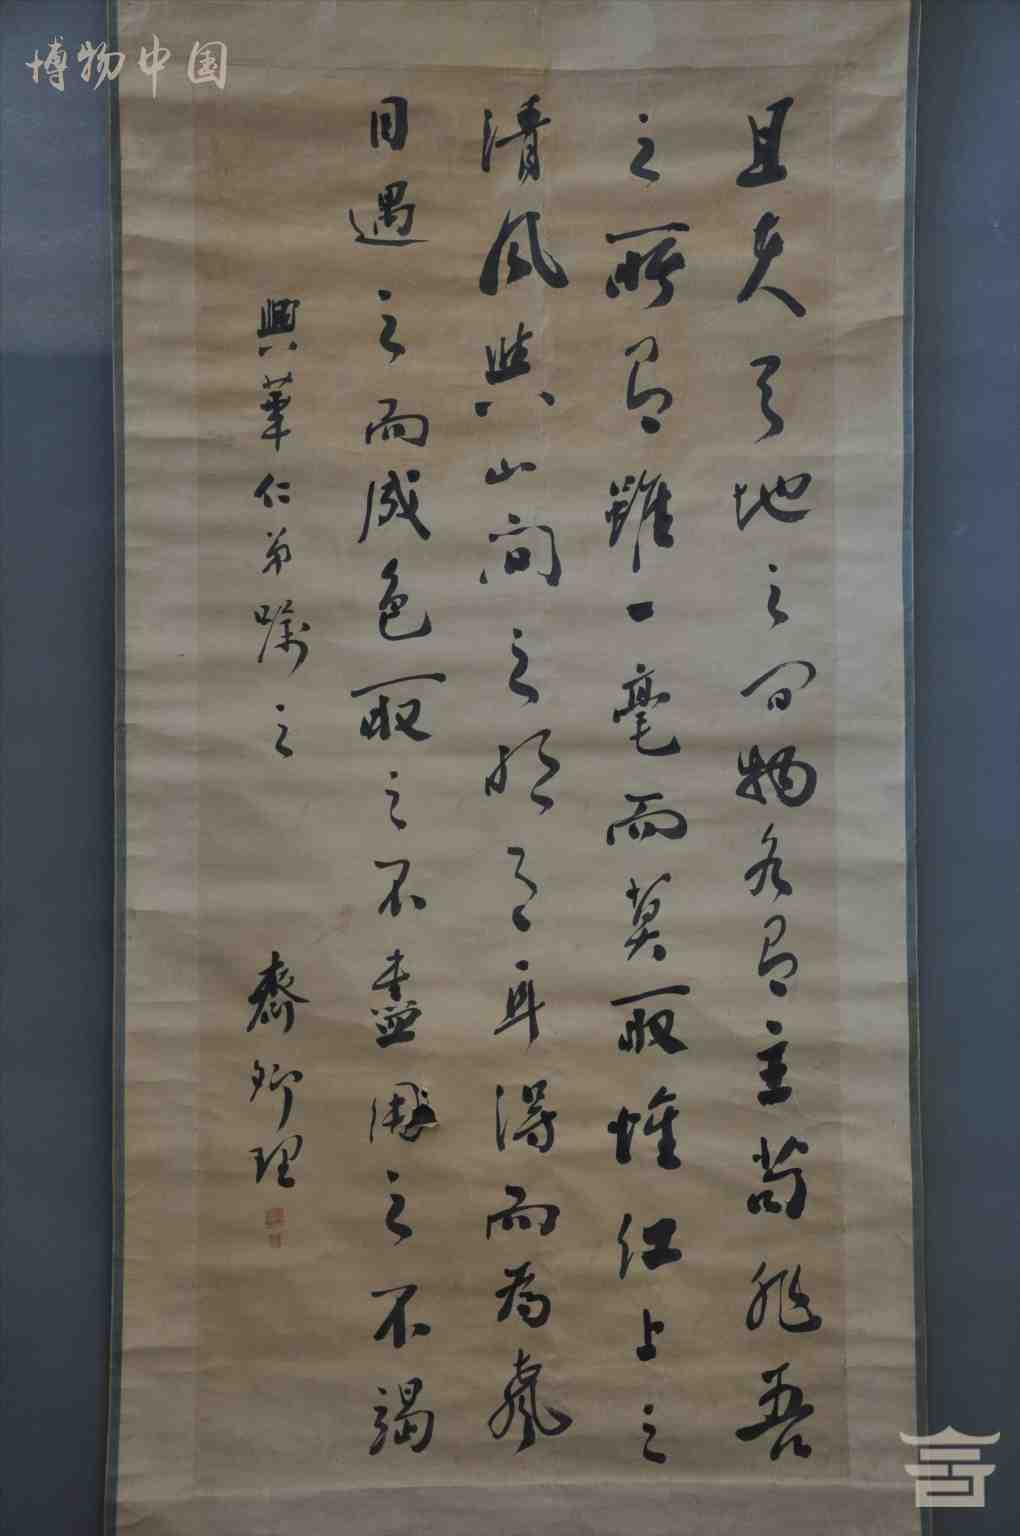 博物中国
且夫天地之間物各有主苟非吾
之所有雖一毫而莫取惟江上之
清風與山間之明月耳得而為聲
目遇之而成色取之不盡用之不竭
興華仁弟囑之
齋卿理